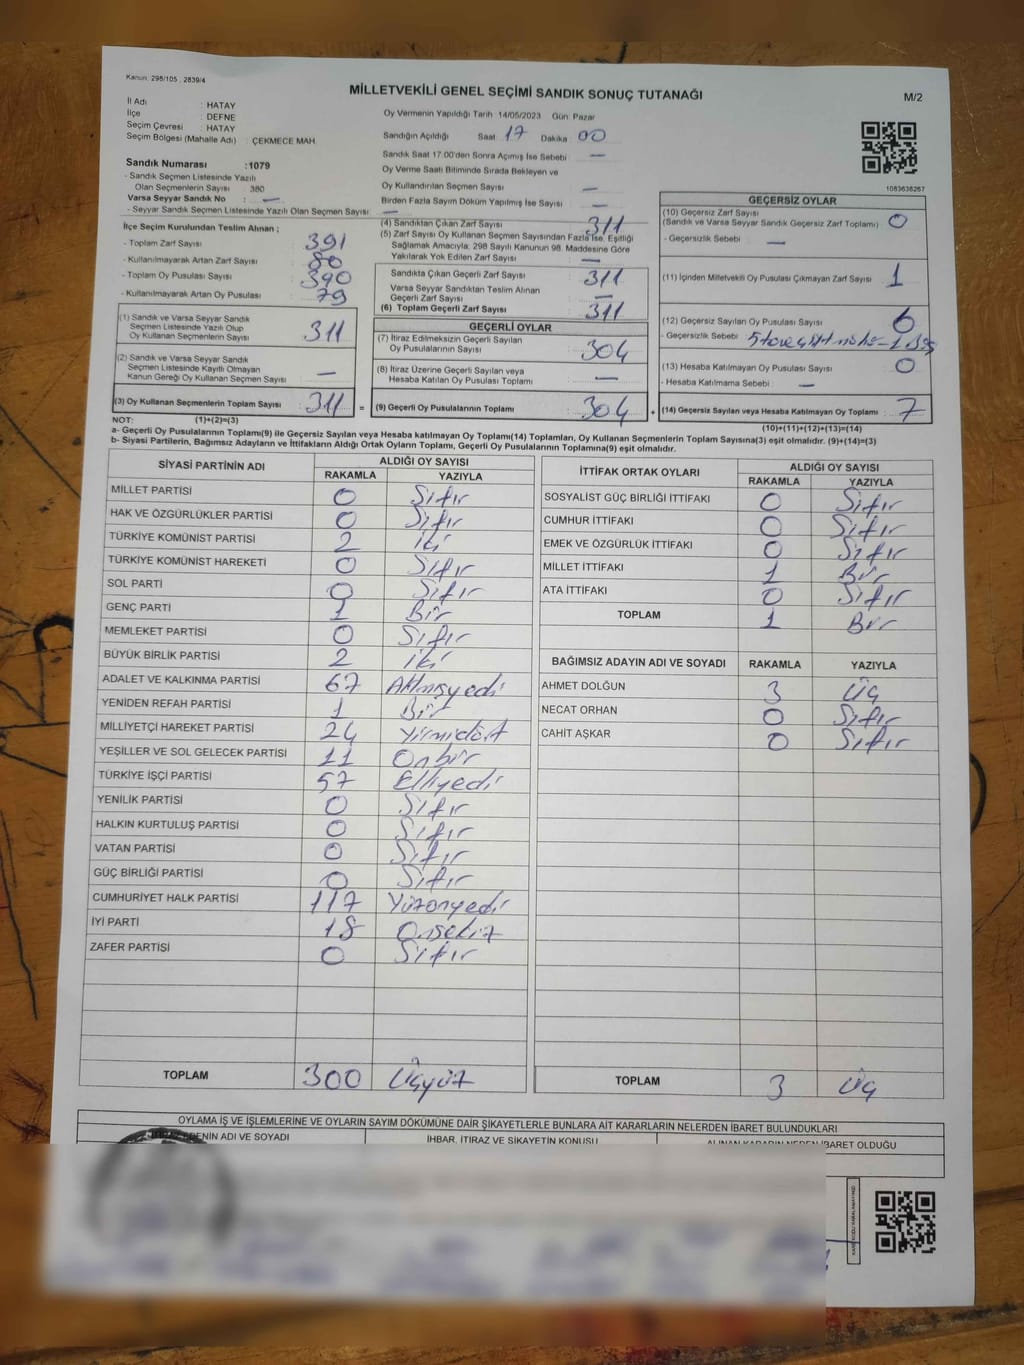 Kanun: 298/105 ; 2839/4
MİLLETVEKİLİ GENEL SEÇİMİ SANDIK SONUÇ TUTANAĞI
M/2
İl Adı : HATAY
İlçe : DEFNE
Seçim Çevresi : HATAY
Seçim Bölgesi (Mahalle Adı) : ÇEKMECE MAH.
Sandık Numarası :1079
- Sandık Seçmen Listesinde Yazılı
Olan Seçmenlerin Sayısı : 380
Varsa Seyyar Sandık No : —
- Seyyar Sandık Seçmen Listesinde Yazılı Olan Seçmen Sayısı : —
Oy Vermenin Yapıldığı Tarih 14/05/2023 Gün: Pazar
Sandığın Açıldığı Saat 17 Dakika 00
Sandık Saat 17:00'den Sonra Açımış İse Sebebi : —
Oy Verme Saati Bitiminde Sırada Bekleyen ve
Oy Kullandırılan Seçmen Sayısı : —
Birden Fazla Sayım Döküm Yapılmış İse Sayısı : —
1083638267
İlçe Seçim Kurulundan Teslim Alınan ;
- Toplam Zarf Sayısı : 391
- Kullanılmayarak Artan Zarf Sayısı : 80
- Toplam Oy Pusulası Sayısı : 390
- Kullanılmayarak Artan Oy Pusulası : 79
(1) Sandık ve Varsa Seyyar Sandık
Seçmen Listesinde Yazılı Olup
Oy Kullanan Seçmenlerin Sayısı : 311
(2) Sandık ve Varsa Seyyar Sandık
Seçmen Listesinde Kayıtlı Olmayan
Kanun Gereği Oy Kullanan Seçmen Sayısı : —
(3) Oy Kullanan Seçmenlerin Toplam Sayısı : 311 =
(4) Sandıktan Çıkan Zarf Sayısı : 311
(5) Zarf Sayısı Oy Kullanan Seçmen Sayısından Fazla İse, Eşitliği
Sağlamak Amacıyla; 298 Sayılı Kanunun 98. Maddesine Göre
Yakılarak Yok Edilen Zarf Sayısı : —
Sandıkta Çıkan Geçerli Zarf Sayısı : 311
Varsa Seyyar Sandıktan Teslim Alınan
Geçerli Zarf Sayısı : —
(6) Toplam Geçerli Zarf Sayısı : 311
GEÇERLİ OYLAR
(7) İtiraz Edilmeksizin Geçerli Sayılan
Oy Pusulalarının Sayısı : 304
(8) İtiraz Üzerine Geçerli Sayılan veya
Hesaba Katılan Oy Pusulası Toplamı : —
(9) Geçerli Oy Pusulalarının Toplamı : 304 +
GEÇERSİZ OYLAR
(10) Geçersiz Zarf Sayısı
(Sandık ve Varsa Seyyar Sandık Geçersiz Zarf Toplamı) : 0
- Geçersizlik Sebebi : —
(11) İçinden Milletvekili Oy Pusulası Çıkmayan Zarf Sayısı : 1
(12) Geçersiz Sayılan Oy Pusulası Sayısı : 6
- Geçersizlik Sebebi :
(13) Hesaba Katılmayan Oy Pusulası Sayısı : 0
- Hesaba Katılmama Sebebi : —
(14) Geçersiz Sayılan veya Hesaba Katılmayan Oy Toplamı : 7
NOT: (1)+(2)=(3)
(10)+(11)+(12)+(13)=(14)
a- Geçerli Oy Pusulalarının Toplamı(9) ile Geçersiz Sayılan veya Hesaba katılmayan Oy Toplamı(14) Toplamları, Oy Kullanan Seçmenlerin Toplam Sayısına(3) eşit olmalıdır. (9)+(14)=(3)
b- Siyasi Partilerin, Bağımsız Adayların ve İttifakların Aldığı Ortak Oyların Toplamı, Geçerli Oy Pusulalarının Toplamına(9) eşit olmalıdır.
SİYASİ PARTİNİN ADI ALDIĞI OY SAYISI
RAKAMLA YAZIYLA
MİLLET PARTİSİ 0 Sıfır
HAK VE ÖZGÜRLÜKLER PARTİSİ 0 Sıfır
TÜRKİYE KOMÜNİST PARTİSİ 2 iki
TÜRKİYE KOMÜNİST HAREKETİ 0 Sıfır
SOL PARTİ 0 Sıfır
GENÇ PARTİ 1 Bir
MEMLEKET PARTİSİ 0 Sıfır
BÜYÜK BİRLİK PARTİSİ 2 iki
ADALET VE KALKINMA PARTİSİ 67 Altmışyedi
YENİDEN REFAH PARTİSİ 1 Bir
MİLLİYETÇİ HAREKET PARTİSİ 24 Yirmidört
YEŞİLLER VE SOL GELECEK PARTİSİ 11 Onbir
TÜRKİYE İŞÇİ PARTİSİ 57 Elliyedi
YENİLİK PARTİSİ 0 Sıfır
HALKIN KURTULUŞ PARTİSİ 0 Sıfır
VATAN PARTİSİ 0 Sıfır
GÜÇ BİRLİĞİ PARTİSİ 0 Sıfır
CUMHURİYET HALK PARTİSİ 117 Yüzonyedi
İYİ PARTİ 18 Onsekiz
ZAFER PARTİSİ 0 Sıfır
TOPLAM 300 Üçyüz
İTTİFAK ORTAK OYLARI ALDIĞI OY SAYISI
RAKAMLA YAZIYLA
SOSYALİST GÜÇ BİRLİĞİ İTTİFAKI 0 Sıfır
CUMHUR İTTİFAKI 0 Sıfır
EMEK VE ÖZGÜRLÜK İTTİFAKI 0 Sıfır
MİLLET İTTİFAKI 1 Bir
ATA İTTİFAKI 0 Sıfır
TOPLAM 1 Bir
BAĞIMSIZ ADAYIN ADI VE SOYADI RAKAMLA YAZIYLA
AHMET DOLĞUN 3 Üç
NECAT ORHAN 0 Sıfır
CAHİT AŞKAR 0 Sıfır
TOPLAM 3 Üç
OYLAMA İŞ VE İŞLEMLERİNE VE OYLARIN SAYIM DÖKÜMÜNE DAİR ŞİKAYETLERLE BUNLARA AİT KARARLARIN NELERDEN İBARET BULUNDUKLARI
EDENİN ADI VE SOYADI İHBAR, İTİRAZ VE ŞİKAYETİN KONUSU ALINAN KARARIN NEDEN İBARET OLDUĞU